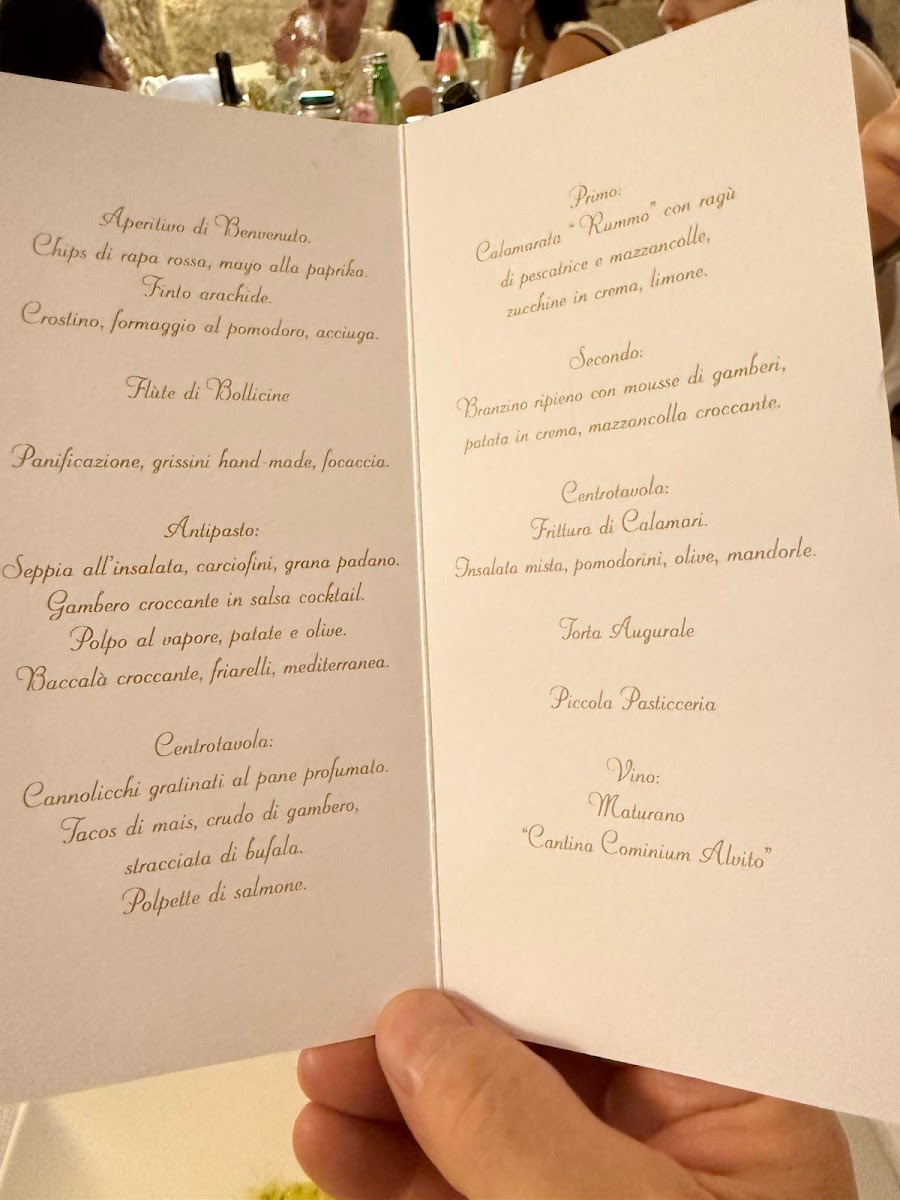 Aperitivo di Benvenuto.
Chips di rapa rossa, mayo alla paprika.
Finto arachide.
Crostino, formaggio al pomodoro, acciuga.
Flùte di Bollicine
Panificazione, grissini hand-made, focaccia.
Antipasto:
Seppia all'insalata, carciofini, grana padano.
Gambero croccante in salsa cocktail.
Polpo al vapore, patate e olive.
Baccalà croccante, friarelli, mediterranea.
Centrotavola:
Cannolicchi gratinati al pane profumato.
Tacos di mais, crudo di gambero,
stracciata di bufala.
Polpette di salmone.
Primo:
Calamarata "Rummo" con ragù
di pescatrice e mazzancolle,
zucchine in crema, limone.
Secondo:
Branzino ripieno con mousse di gamberi,
patata in crema, mazzancolla croccante.
Centrotavola:
Frittura di Calamari.
Insalata mista, pomodorini, olive, mandorle.
Torta Augurale
Piccola Pasticceria
Vino:
Maturano
"Cantina Cominium Alvito"